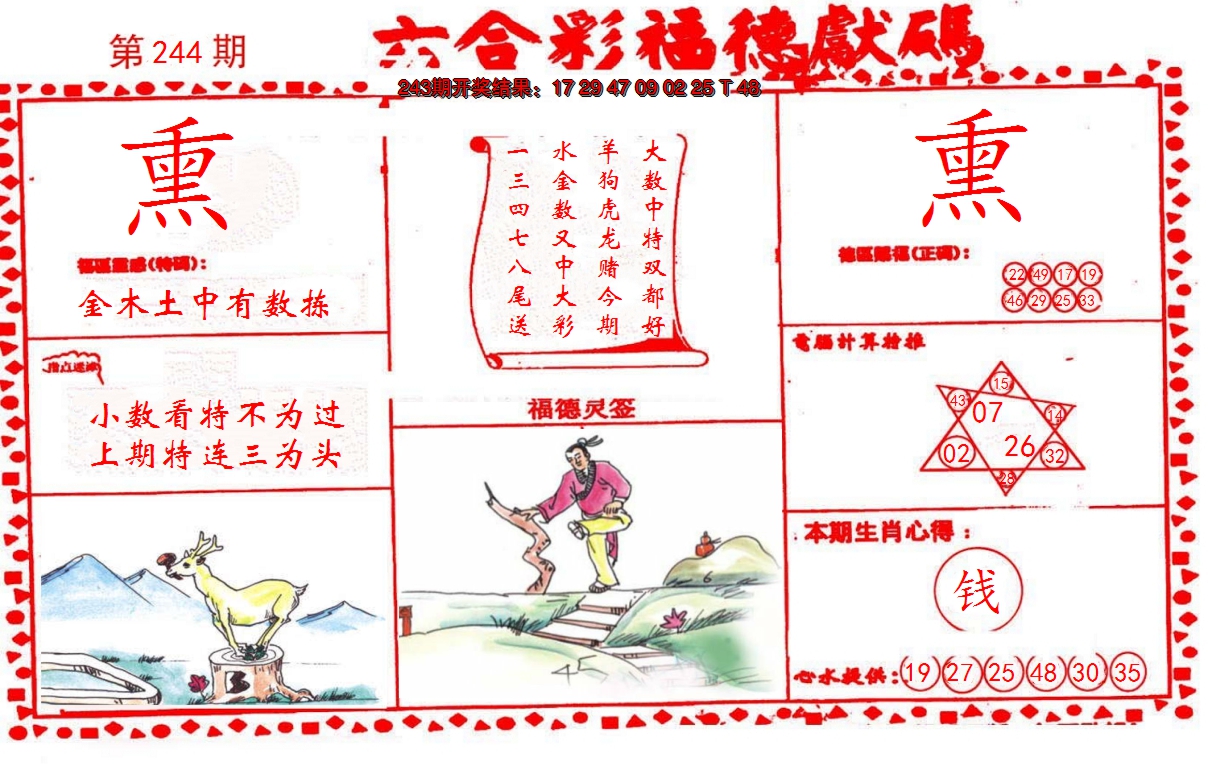 第 244 期
六合彩福德獻碼
243期开奖结果：17 29 47 09 02 25 T 48
熏
福區靈感(特碼)：
金木土中有数拣
指点迷津
小数看特不为过
上期特连三为头
大数中特双都好
羊狗虎龙赌今期
水金数又中大彩
一三四七八尾送
福德灵签
6
熏
德區賜福(正碼)：
22 49 17 19
46 29 25 33
電腦計算檢推
15
43 07 14
02 26 32
28
本期生肖心得：
钱
心水提供：19 27 25 48 30 35